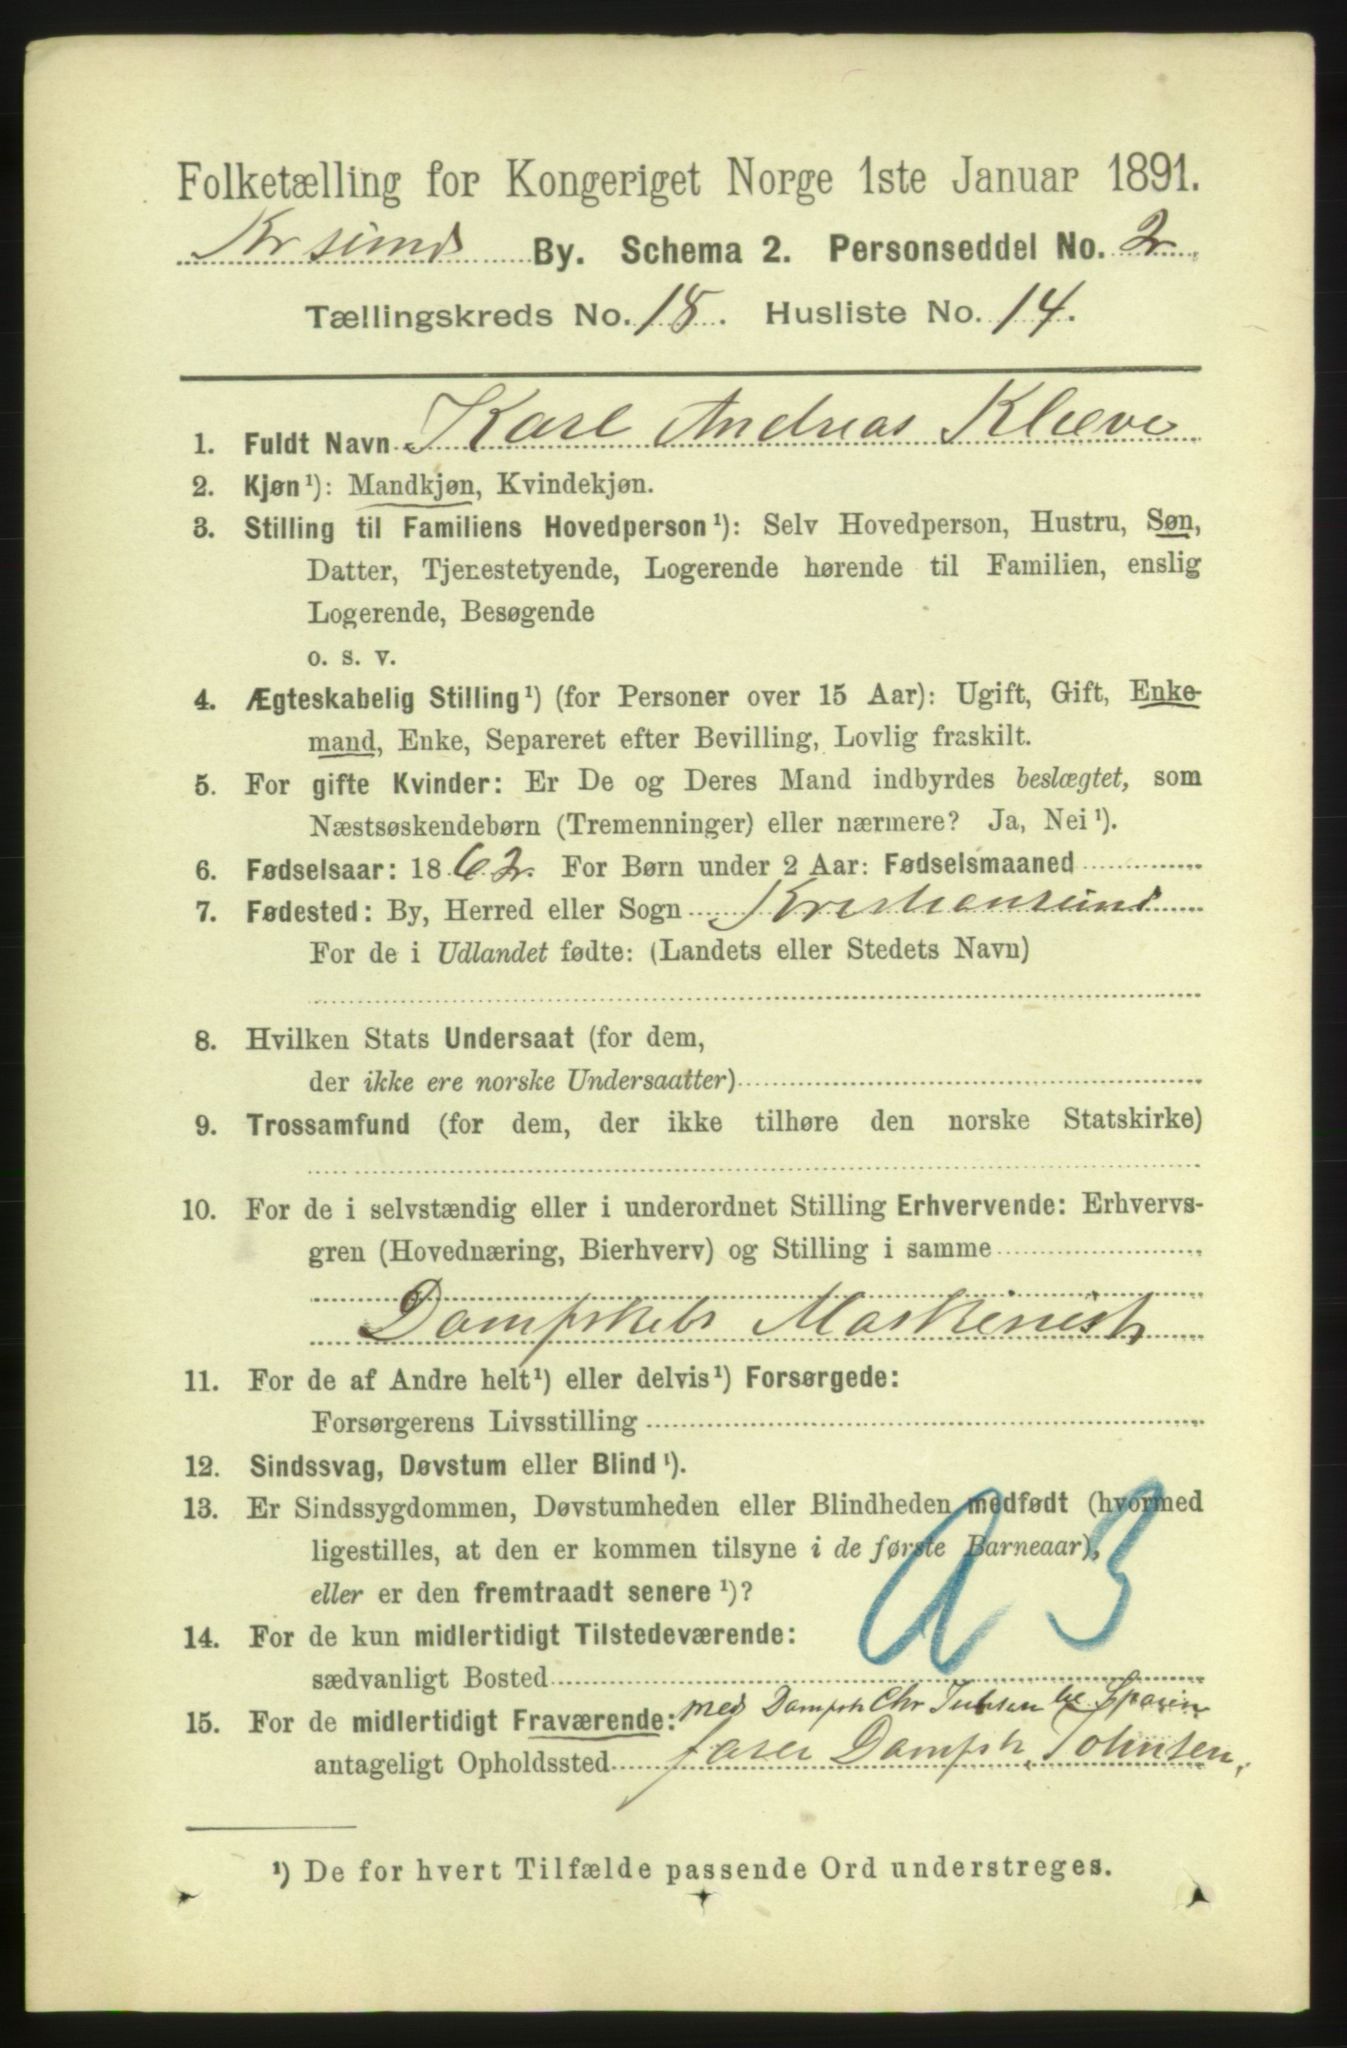 Folketælling for Kongeriget Norge 1ste Januar 1891.
Krsund By. Schema 2. Personseddel No. 2.
Tællingskreds No. 18. Husliste No. 14.
1. Fuldt Navn Karl Andreas Kleve
2. Kjøn¹): Mandkjøn, Kvindekjøn.
3. Stilling til Familiens Hovedperson¹): Selv Hovedperson, Hustru, Søn,
Datter, Tjenestetyende, Logerende hørende til Familien, enslig
Logerende, Besøgende
o. s. v.
4. Ægteskabelig Stilling¹) (for Personer over 15 Aar): Ugift, Gift, Enke-
mand, Enke, Separeret efter Bevilling, Lovlig fraskilt.
5. For gifte Kvinder: Er De og Deres Mand indbyrdes beslægtet, som
Næstsøskendebørn (Tremenninger) eller nærmere? Ja, Nei¹).
6. Fødselsaar: 1862. For Børn under 2 Aar: Fødselsmaaned
7. Fødested: By, Herred eller Sogn Kristiansund
For de i Udlandet fødte: (Landets eller Stedets Navn)
8. Hvilken Stats Undersaat (for dem,
der ikke ere norske Undersaatter)
9. Trossamfund (for dem, der ikke tilhøre den norske Statskirke)
10. For de i selvstændig eller i underordnet Stilling Erhvervende: Erhvervs-
gren (Hovednæring, Bierhverv) og Stilling i samme
Dampskibs Maskinist
11. For de af Andre helt¹) eller delvis¹) Forsørgede:
Forsørgerens Livsstilling
12. Sindssvag, Døvstum eller Blind¹).
13. Er Sindssygdommen, Døvstumheden eller Blindheden medfødt (hvormed
ligestilles, at den er kommen tilsyne i de første Barneaar),
eller er den fremtraadt senere¹)?
a 3
14. For de kun midlertidigt Tilstedeværende:
sædvanligt Bosted
15. For de midlertidigt Fraværende: med Dampsk Chr
antageligt Opholdssted farer Dampsk. Johnsen,
¹) De for hvert Tilfælde passende Ord understreges.